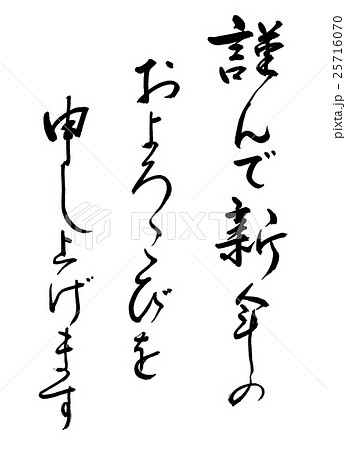 謹んで新年の
およろこびを
申し上げます
PIXTA
pixta.jp - 25716070